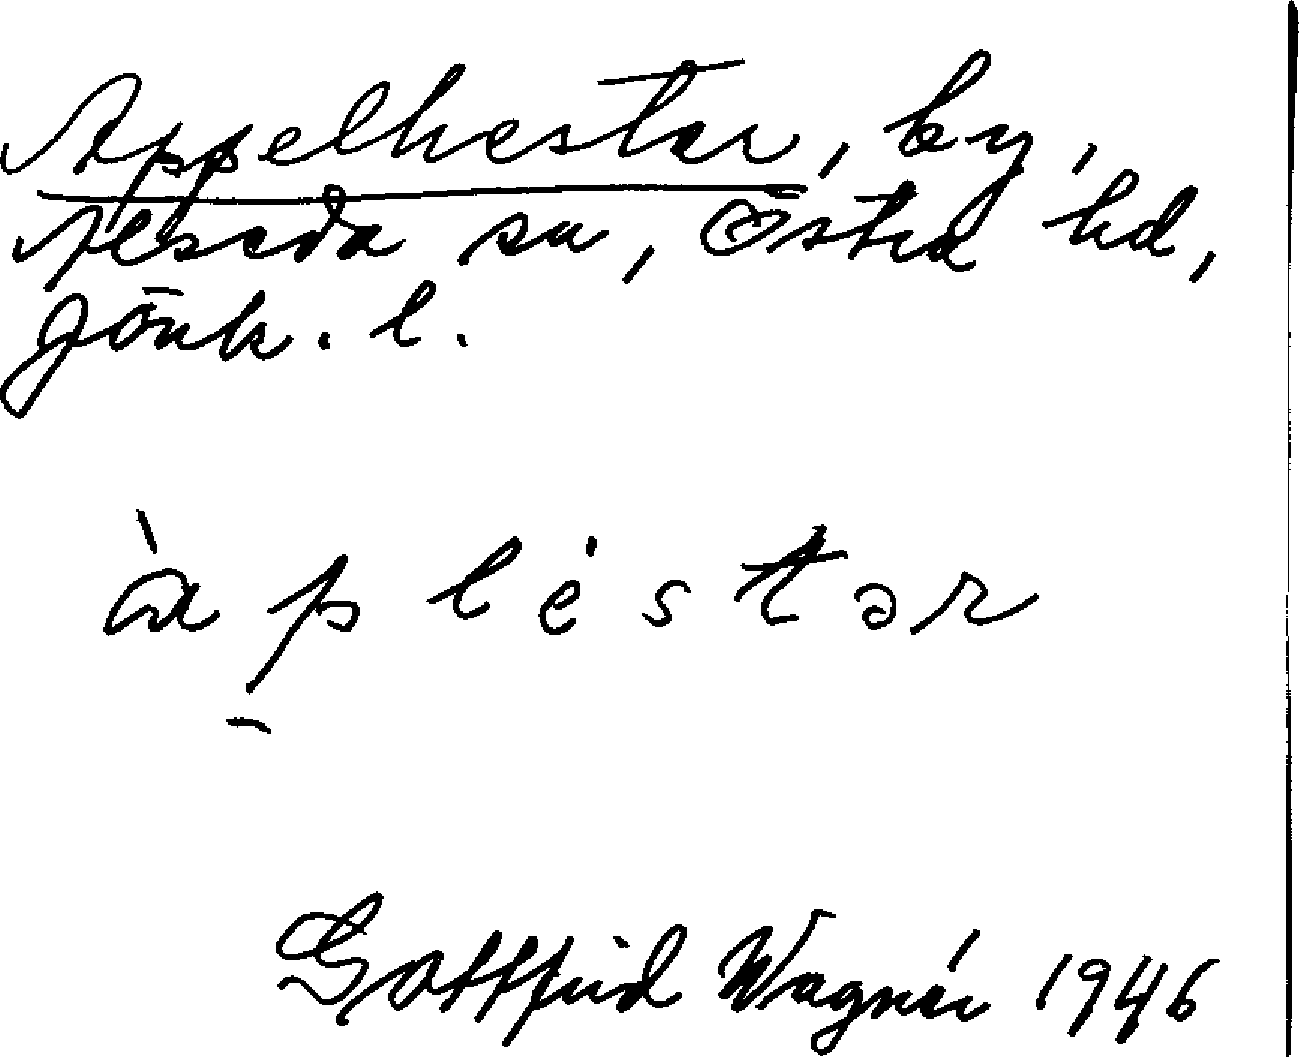 Appelhestar, by,
Alseda sn, Östra hd,
Jönk. l.
àpléstər
Gottfrid Wagnér 1946